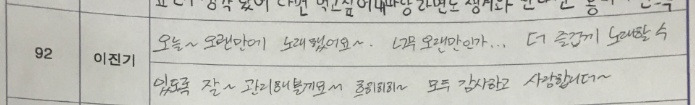 92 이진기 오늘~ 오랜만에 노래했어요~. 너무 오랜만인가... 더 즐겁게 노래할 수
있도록 잘~ 관리해볼게요~ 흐히히히~ 모두 감사하고 사랑합니다~